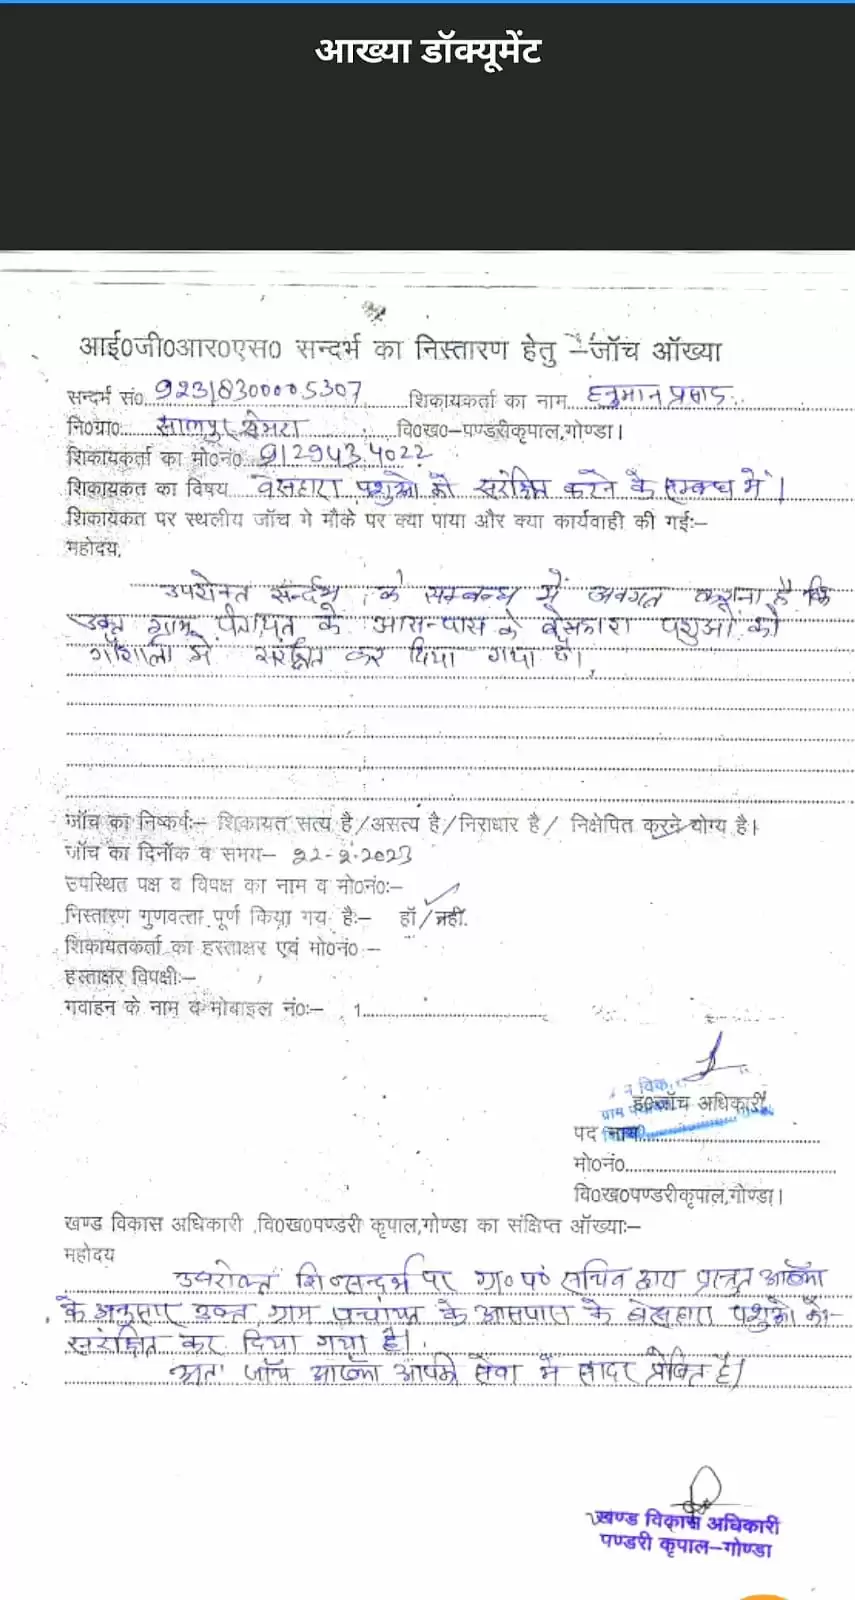 आख्या डॉक्यूमेंट
आई0जी0आर0एस0 सन्दर्भ का निस्तारण हेतु –जॉच ऑख्या
सन्दर्भ सं0 92318300005307 शिकायकर्ता का नाम हनुमान प्रसाद
नि0ग्रा0 सालपुर सेमरा वि0ख0–पण्डरीकृपाल,गोण्डा।
शिकायकर्ता का मो0नं0 9129434022
शिकायकत का विषय वेसहारा पशुओ को संरक्षित करने के सम्बन्ध मे।
शिकायकत पर स्थलीय जॉच मे मौके पर क्या पाया और क्या कार्यवाही की गई:–
महोदय,
उपरोक्त सन्दर्भ के सम्बन्ध में अवगत कराना है कि
उक्त ग्राम पंचायत के आस-पास के बेसहारा पशुओं को
गौशाला में संरक्षित कर दिया गया है।
जॉच का निष्कर्ष:– शिकायत सत्य है/असत्य है/निराधार है/ निक्षेपित करने योग्य है।
जॉच का दिनॉक व समय– 22-2-2023
उपस्थित पक्ष व विपक्ष का नाम व मो0नं0:–
निस्तारण गुणवत्ता पूर्ण किया गय है:– हॉ/नहीं.
शिकायतकर्ता का हस्ताक्षर एवं मो0नं0 –
हस्ताक्षर विपक्षी:–
गवाहन के नाम व मोबाइल नं0:– 1
ह0जॉच अधिकारी
पद नाम
मो0नं0
वि0ख0पण्डरीकृपाल,गोण्डा।
खण्ड विकास अधिकारी ,वि0ख0पण्डरी कृपाल,गोण्डा का संक्षिप्त ऑख्या:–
महोदय
उपरोक्त शि० सन्दर्भ पर ग्रा० पं० सचिव द्वारा प्रस्तुत आख्या
के अनुसार उक्त ग्राम पंचायत के आसपास के बेसहारा पशुओ को
संरक्षित कर दिया गया है।
अतः जॉच आख्या आपकी सेवा में सादर प्रेषित है।
खण्ड विकास अधिकारी
पण्डरी कृपाल–गोण्डा